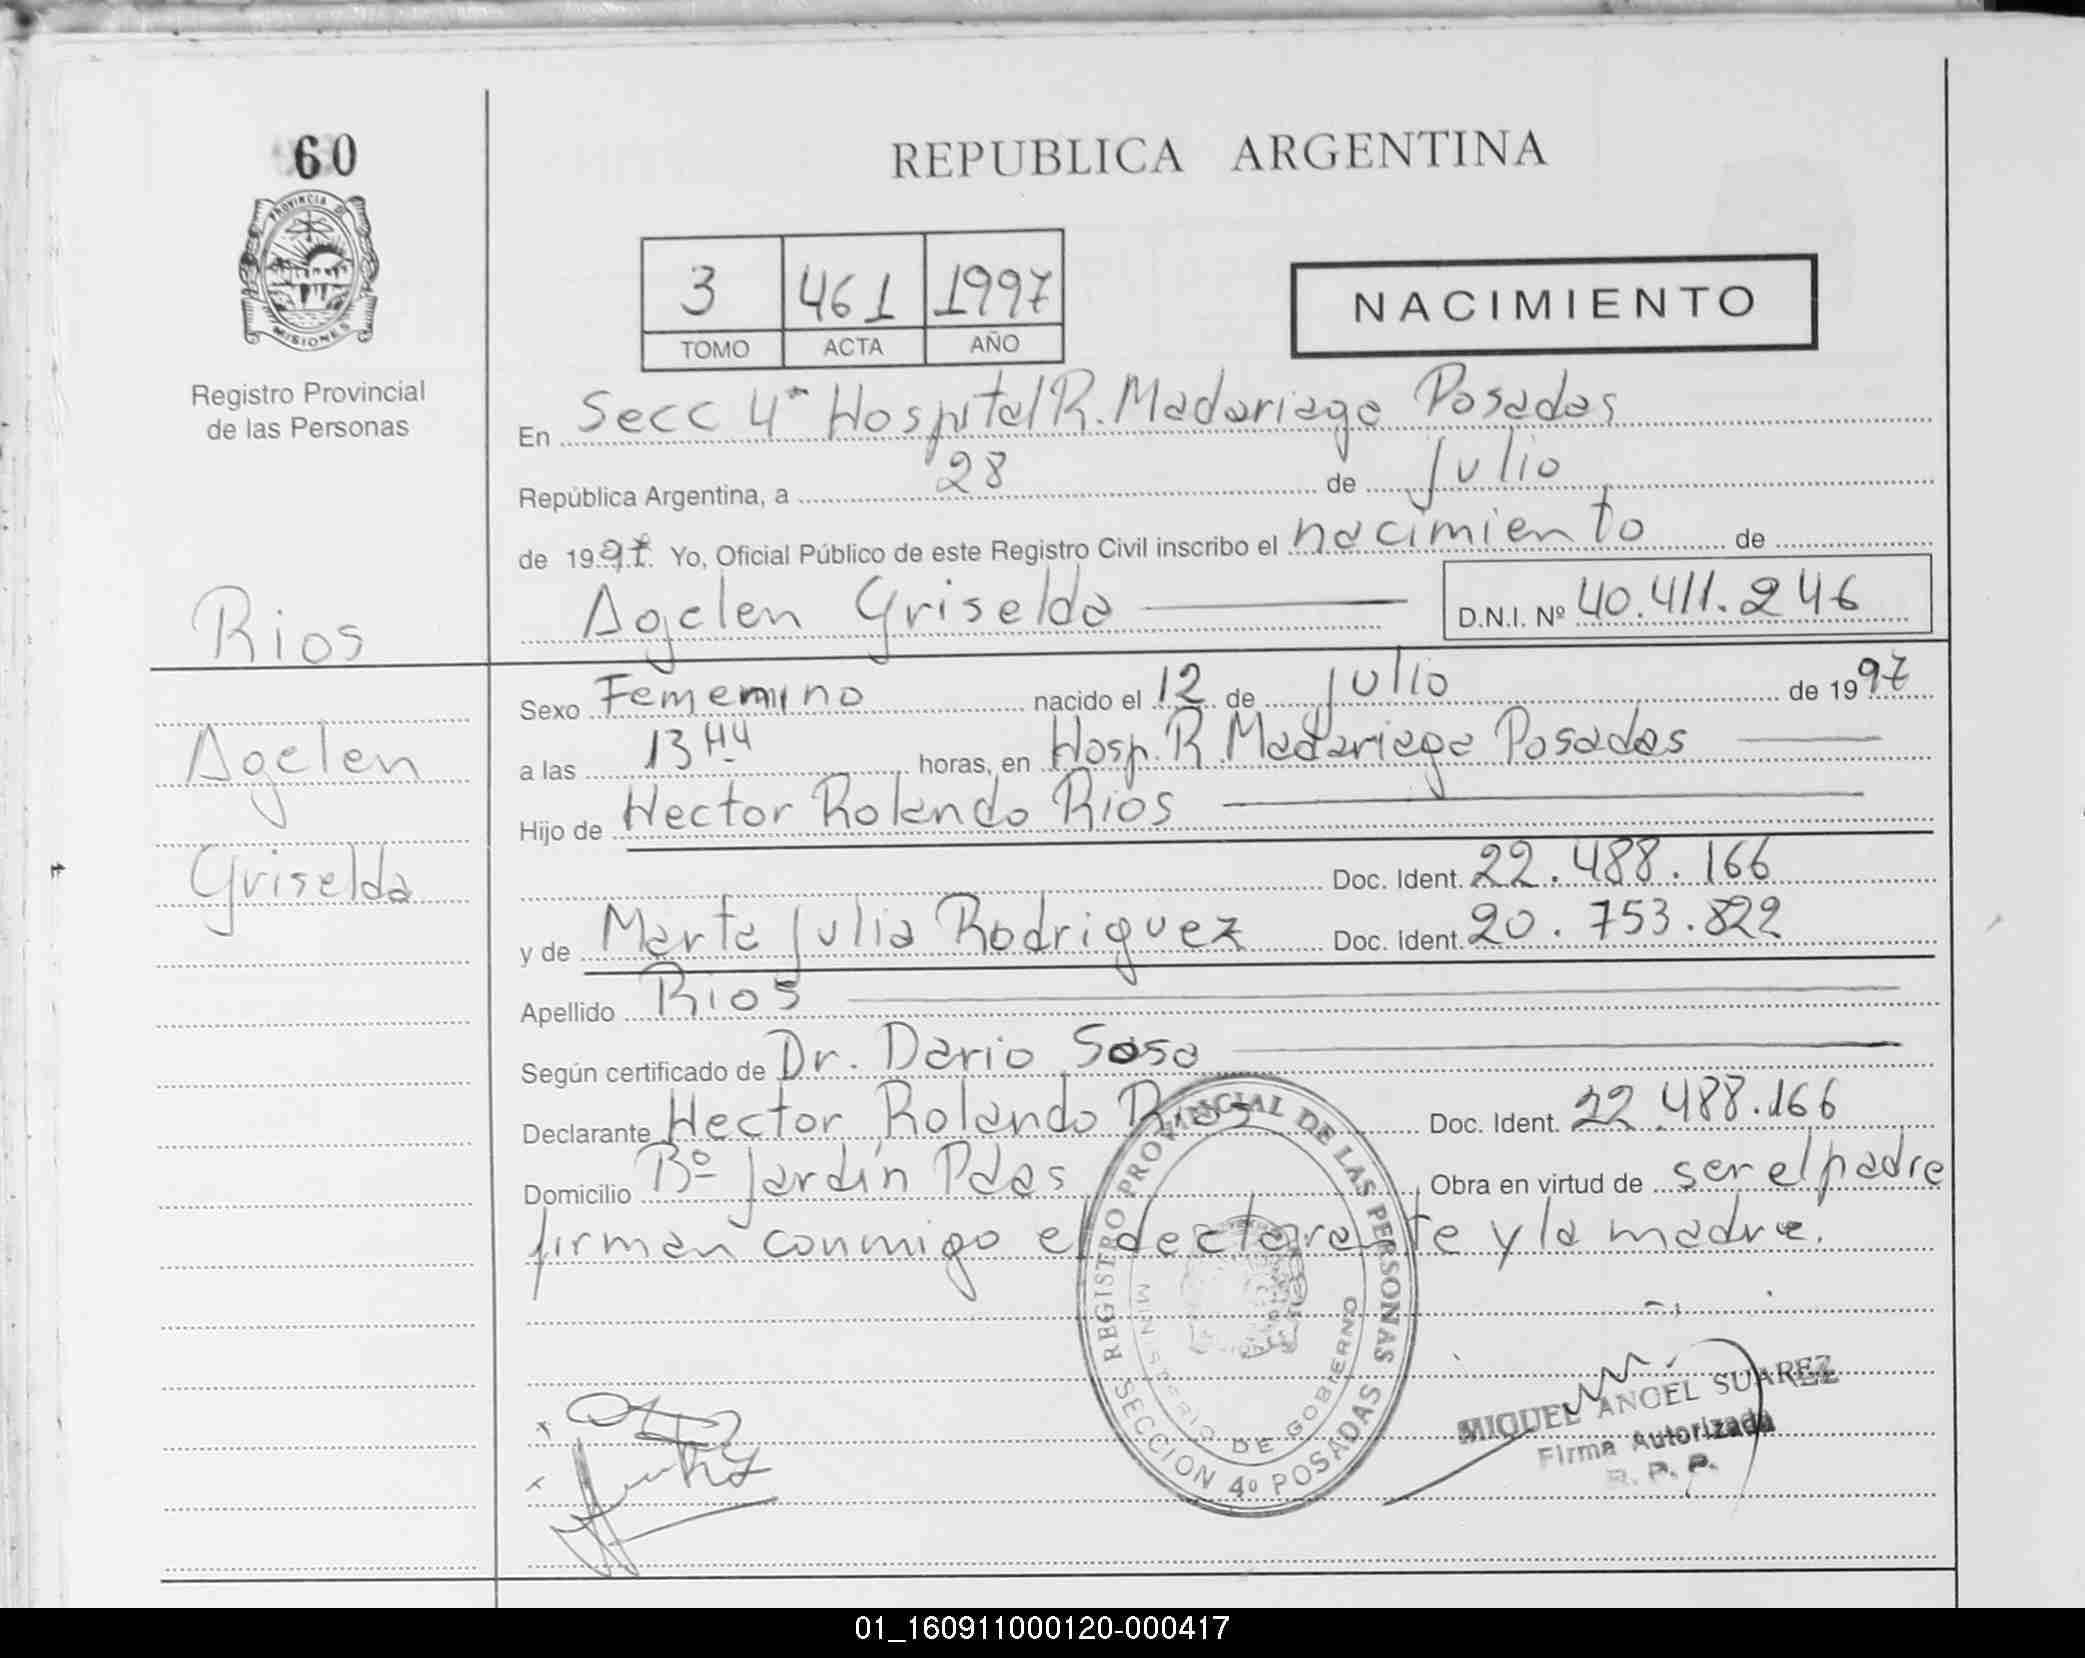 60
PROVINCIA D
MISIONES
Registro Provincial
de las Personas
REPUBLICA ARGENTINA
3 461 1997
TOMO ACTA AÑO
NACIMIENTO
En Secc 4ª Hospital R. Madariaga Posadas
República Argentina, a 28 de Julio
de 1997. Yo, Oficial Público de este Registro Civil inscribo el nacimiento de
Agelen Griselda D.N.I. Nº 40.411.246
Rios
Agelen
Griselda
Sexo Fememino nacido el 12 de Julio de 1997
a las 13 horas, en Hosp. R. Madariaga Posadas
Hijo de Hector Rolando Rios
Doc. Ident. 22.488.166
y de Marta Julia Rodriguez Doc. Ident. 20.753.822
Apellido Rios
Según certificado de Dr. Dario Sosa
Declarante Hector Rolando Rios Doc. Ident. 22.488.166
Domicilio Bº Jardín Pdas Obra en virtud de ser el padre
firman conmigo el declarante y la madre.
REGISTRO PROVINCIAL DE LAS PERSONAS
MINISTERIO DE GOBIERNO
SECCION 4º POSADAS
MIGUEL ANGEL SUAREZ
Firma Autorizada
R. P. P.
01_160911000120-000417